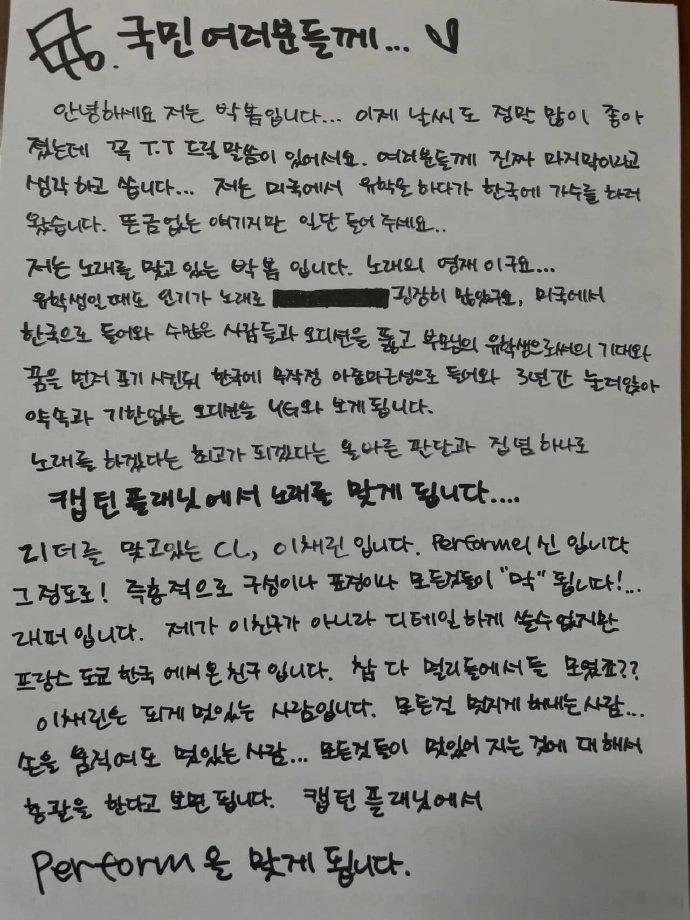 To. 국민 여러분들께...
안녕하세요 저는 박봄입니다... 이제 날씨도 정말 많이 좋아
졌는데 꼭 T.T 드릴 말씀이 있어서요. 여러분들께 진짜 마지막이라고
생각하고 씁니다... 저는 미국에서 유학을 하다가 한국에 가수를 하러
왔습니다. 뜬금없는 얘기지만 일단 들어 주세요..
저는 노래를 맞고 있는 박봄 입니다. 노래의 영재 이구요...
유학생일때도 인기가 노래로 굉장히 많았구요, 미국에서
한국으로 들어와 수많은 사람들과 오디션을 뚫고 부모님의 유학생으로써의 기대와
꿈을 먼저 포기 시킨뒤 한국에 무작정 아줌마근성으로 들어와 3년간 눌러앉아
약속과 기한없는 오디션을 YG와 보게됩니다.
노래를 하겠다는 최고가 되겠다는 올바른 판단과 집념 하나로
캡틴 플래닛에서 노래를 맞게 됩니다....
리더를 맞고있는 CL, 이채린입니다. Perform의 신 입니다
그정도로! 즉흥적으로 구성이나 표정이나 모든것들이 "막" 됩니다!...
래퍼입니다. 제가 이친구가 아니라 디테일하게 쓸수없지만
프랑스 도쿄 한국 에서온 친구입니다. 참 다 멀리들에서들 모였죠??
이채린은 되게 멋있는 사람입니다. 모든걸 멋지게 해내는사람...
손을 움직여도 멋있는 사람... 모든것들이 멋있어 지는 것에 대해서
총괄을 한다고 보면 됩니다. 캡틴 플래닛에서
Perform을 맞게 됩니다.